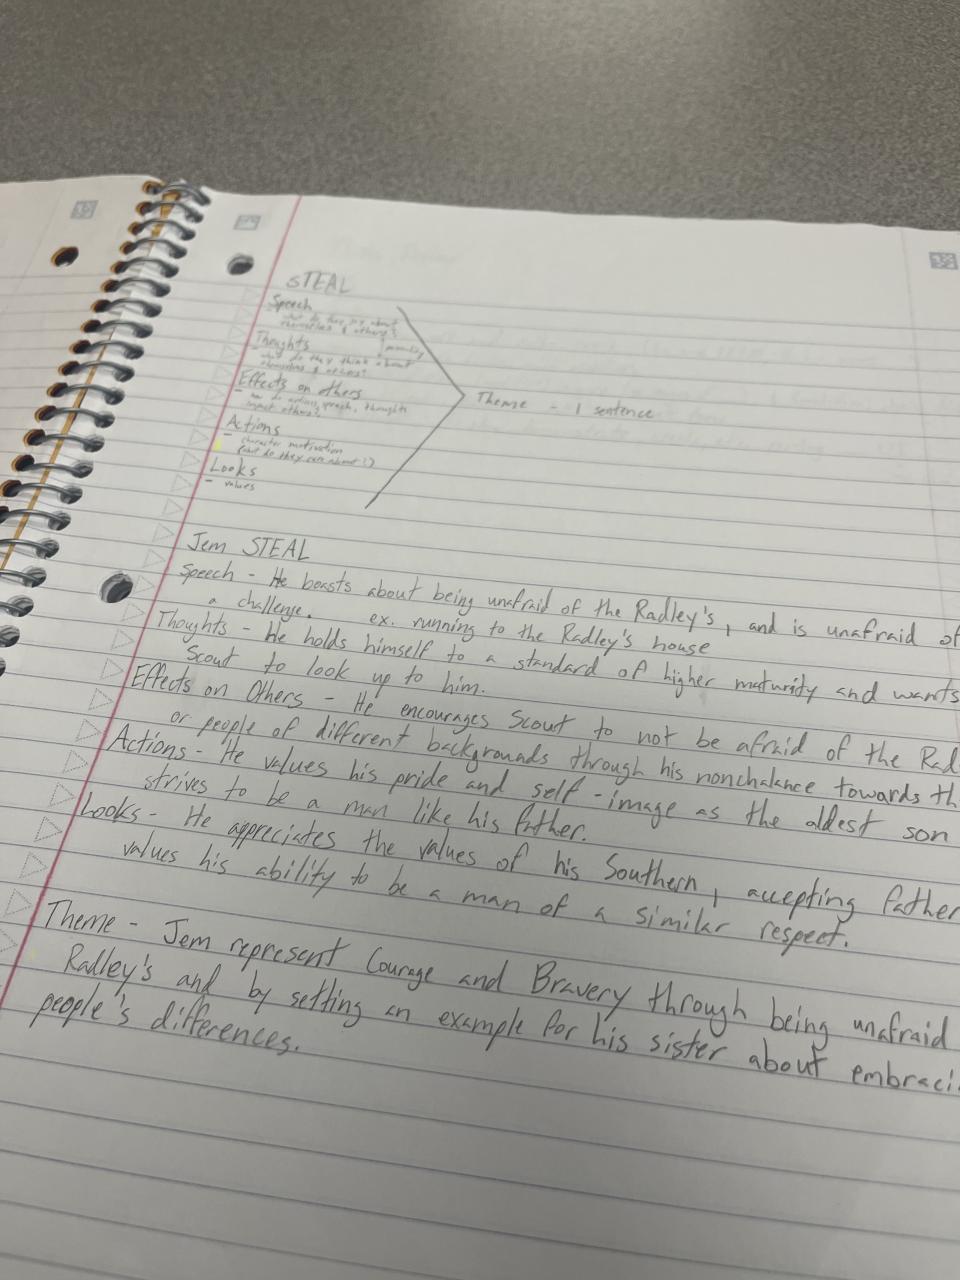 STEAL
Speech
- what do they say about
themselves & others?
Thoughts
- what do they think about
themselves & others?
Effects on others
- how do actions, speech, thoughts
impact others?
Actions
- character motivation
(what do they care about?)
Looks
- values
Theme - 1 sentence
Jem STEAL
Speech - He boasts about being unafraid of the Radley's, and is unafraid of
a challenge. ex. running to the Radley's house
Thoughts - He holds himself to a standard of higher maturity and wants
Scout to look up to him.
Effects on Others - He encourages Scout to not be afraid of the Rad
or people of different backgrounds through his nonchalance towards th
Actions - He values his pride and self-image as the oldest son
strives to be a man like his father.
Looks - He appreciates the values of his Southern, accepting father
values his ability to be a man of a similar respect.
Theme - Jem represent Courage and Bravery through being unafraid
Radley's and by setting an example for his sister about embraci
people's differences.